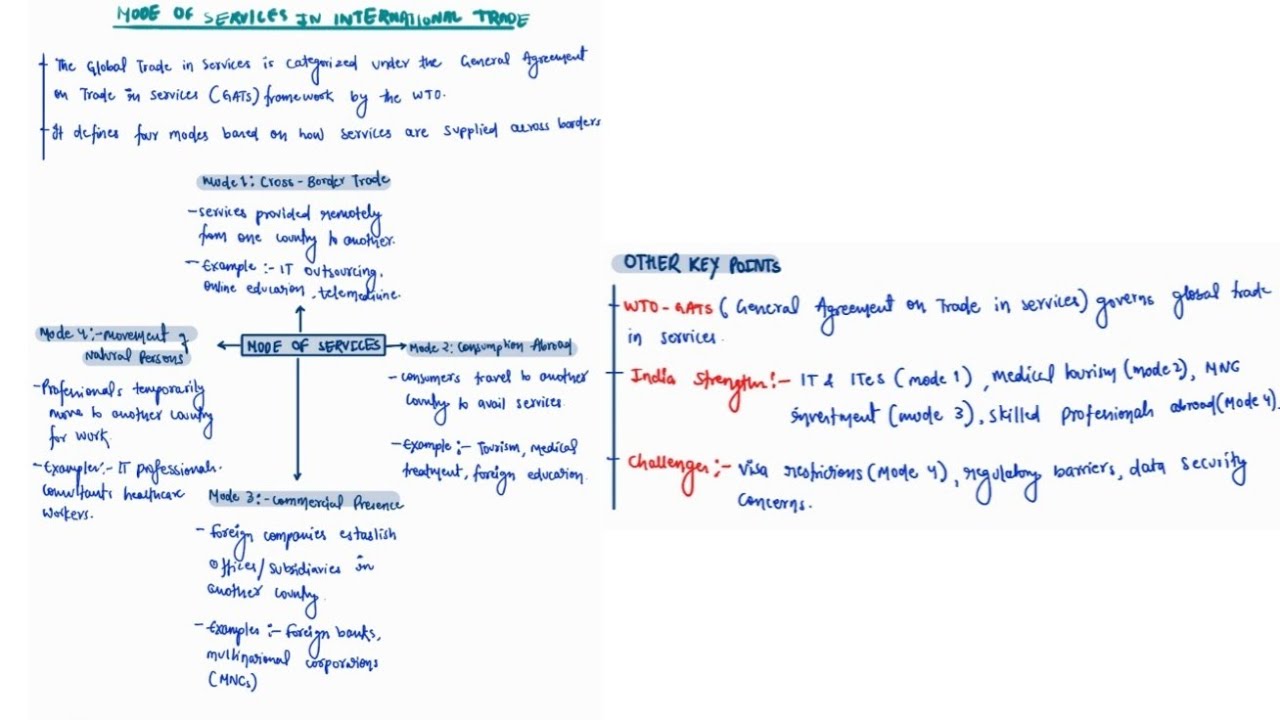 MODE OF SERVICES IN INTERNATIONAL TRADE
The Global Trade in Services is categorized under the General Agreement
on Trade in Services (GATS) framework by the WTO.
It defines four modes based on how services are supplied across borders
Mode 1: Cross-Border Trade
- Services provided remotely
from one country to another.
- Example :- IT outsourcing,
online education, telemedicine.
Mode 4:- Movement of
Natural Persons
- Professionals temporarily
move to another country
for work.
- Examples:- IT professionals.
consultants healthcare
workers.
MODE OF SERVICES
Mode 2: Consumption Abroad
- consumers travel to another
country to avail services.
- Example :- Tourism, medical
treatment, foreign education.
Mode 3:- Commercial Presence
- foreign companies establish
offices/subsidiaries in
another country.
- Examples :- foreign banks,
multinational corporations
(MNCs)
OTHER KEY POINTS
WTO-GATS (General Agreement on Trade in services) governs global trade
in services.
India Strength:- IT & ITes (mode 1), medical tourism (mode 2), MNG
investment (mode 3), skilled professionals abroad (Mode 4).
Challenges:- Visa restrictions (Mode 4), regulatory barriers, data security
concerns.